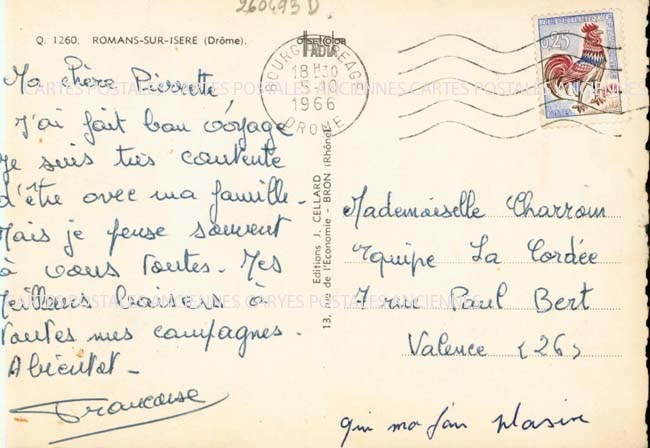 260493 D
Q. 1260. ROMANS-SUR-ISERE (Drôme).
BOURG DE PEAGE
18 H 30
5-10
1966
DROME
REPUBLIQUE
0,25
Ma chère Pierrette
J'ai fait bon voyage
Je suis très contente
d'être avec ma famille.
Mais je pense souvent
à vous toutes. Mes
meilleurs baisers à
toutes mes compagnes.
A bientôt.
Françoise
Editions J. CELLARD
13, rue de l'Economie - BRON (Rhône)
Mademoiselle Charroin
Equipe La Cordée
7 rue Paul Bert
Valence (26)
qui ma fair plasire
CARTES POSTALES ANCIENNES